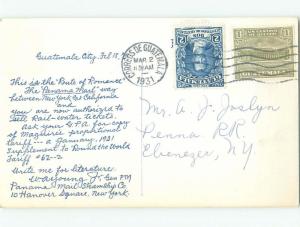 Guatemala City, Feb 18,
CORREOS DE GUATEMALA
MAR 2
1931
This is the Route of Romance
The Panama Mail way
between New York & California
and you are now authorized to
sell Rail-water tickets.
Ask your G.P.A. for copy
of Maguire's proportional
Tariff --- a January, 1931
Supplement to Round the World
Tariff #62-2
Write me for literature.
Gen PTM
Panama Mail Steamship Co.
10 Hanover Square, New York.
Mr. A. J. Joslyn
Penna RR.
Ebenezer, NY